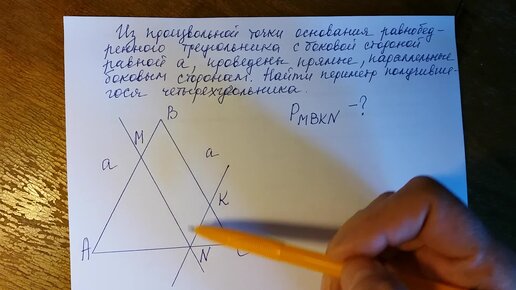 Из произвольной точки основания равнобед-
ренного треугольника с боковой стороной
равной а, проведены прямые, параллельные
боковым сторонам. Найти периметр получивше-
гося четырёхугольника.
P MBKN – ?
B
M
a
a
K
A
N
C